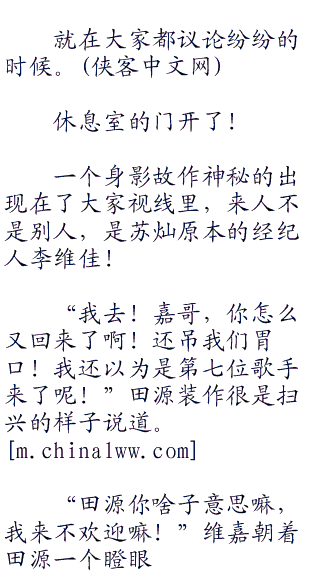 就在大家都议论纷纷的
时候。(侠客中文网)
休息室的门开了！
一个身影故作神秘的出
现在了大家视线里，来人不
是别人，是苏灿原本的经纪
人李维佳！
“我去！嘉哥，你怎么
又回来了啊！还吊我们胃
口！我还以为是第七位歌手
来了呢！”田源装作很是扫
兴的样子说道。
[m.chinalww.com]
“田源你啥子意思嘛，
我来不欢迎嘛！”维嘉朝着
田源一个瞪眼